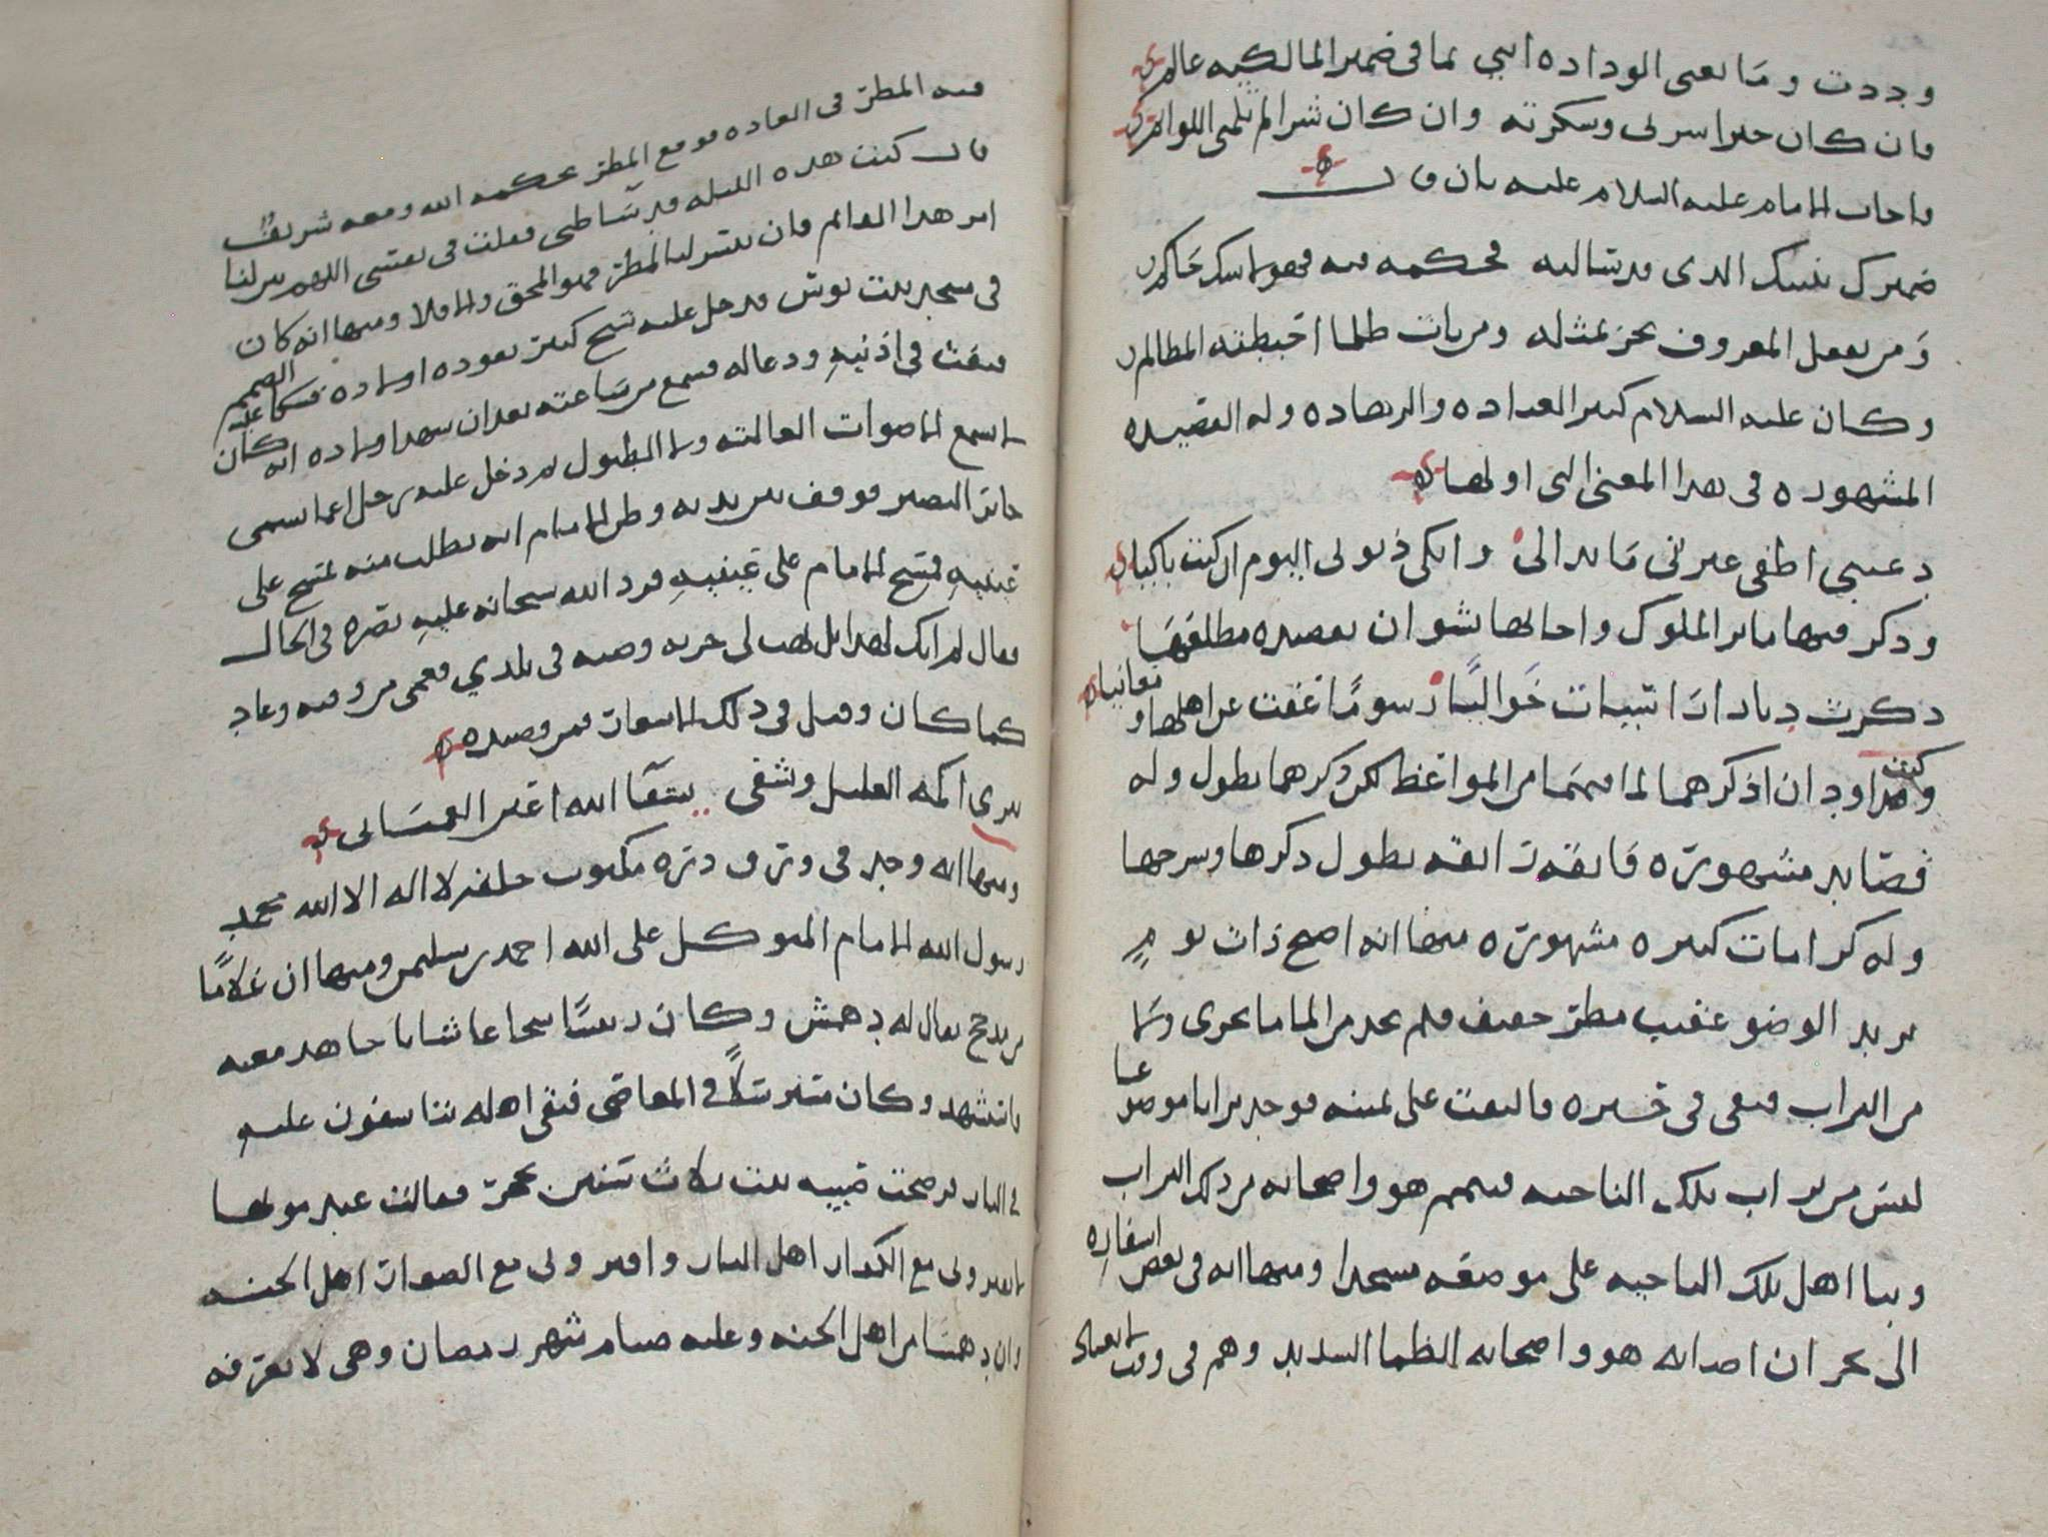 وددت وما يعنى الوداده اننى بما فى ضمير المالكيه عالم
فان كان خيرا سرنى وسكرته وان كان شرا لم تلمنى اللوائم
فاجاب الامام عليه السلام عليه بان قال
ضميرك نفسك الذى قد تساليه فحكمه فيه فهو لا شك حاكم
ومن يفعل المعروف يجز بمثله ومن بات ظلما احبطته المظالم
وكان عليه السلام كثير العباده والزهاده وله القصيده
المشهوره فى هذا المعنى التى اولها
دعينى اطفى عبرتى ما بدا لى وابكى ذنوبى اليوم ان كنت باكيا
وذكر فيها ماير الملوك واحالها بقصيده مطلعها
ذكرت ديارا دارسات خواليا رسوما عفت عن اهلها ومغانيا
وكنت اود ان اذكرهما لما فيهما من المواعظ لكن ذكرهما يطول وله
قصايد مشهوره فايقه رايقه يطول ذكرها وشرحها
وله كرامات كثيره مشهوره منها انه اصبح ذات يوم
يريد الوضو عقيب مطر خفيف فلم يجد من الما ما يجرى ولا
من التراب فبقى فى حيره فالتفت على يمينه فوجد ترابا موضوعا
ليس من تراب تلك الناحيه فتيمم هو واصحابه من ذلك التراب
وبنا اهل تلك الناحيه على موضعه مسجدا ومنها انه فى بعض اسفاره
الى نجران اصابه هو واصحابه الظما الشديد وهم فى وقت لا يعتاد
فيه المطر فى العاده فوقع المطر بحكمه الله ومعه شريف
قال كنت هذه الليله قد ساطنى فقلت فى نفسى اللهم بين لنا
امر هذا العالم فان يتيسر لنا المطر فهو المحق والا فلا ومنها انه كان
فى مسجد بيت بوس فدخل عليه شيخ كبير يقوده اولاده فشكا عليه الصمم
فنفث فى اذنيه ودعا له فسمع من ساعته بعد ان شهد اولاده انه كان
لا يسمع الاصوات العاليه ولا الطبول ثم دخل عليه رجل اعما يسمى
جابر البصير فوقف بين يديه وظن الامام انه يطلب منه يمسح على
عينيه فمسح الامام على عينيه فرد الله سبحانه عليه بصره فى الحال
فقال لم اتك لهذا بل تهب لى جربه وصيه فى بلدي فعمى من وقته وعاد
كما كان وقيل فى ذلك الاشعار فمن قصيده
يبرى اكمه العليل وشفى بشفا الله اعين العميان
ومنها انه وجد فى ورق ذره مكتوب خلقه لا اله الا الله محمد
رسول الله الامام المتوكل على الله احمد بن سليمن ومنها ان غلاما
من مذحج يقال له دهمش وكان رئيسا شجاعا شابا جاهد معه
فاستشهد وكان مسترسلا فى المعاصى فبقى اهله يتاسفون عليه
فى النار ثم صحت صبيه بنت ثلاث سنين بحجر فقالت عند موتها
لا تقبرونى مع الكفار اهل النار واقبرونى مع الصواب اهل الجنه
وان دهمشا من اهل الجنه وعليه صيام شهر رمضان وهى لا تعرفه